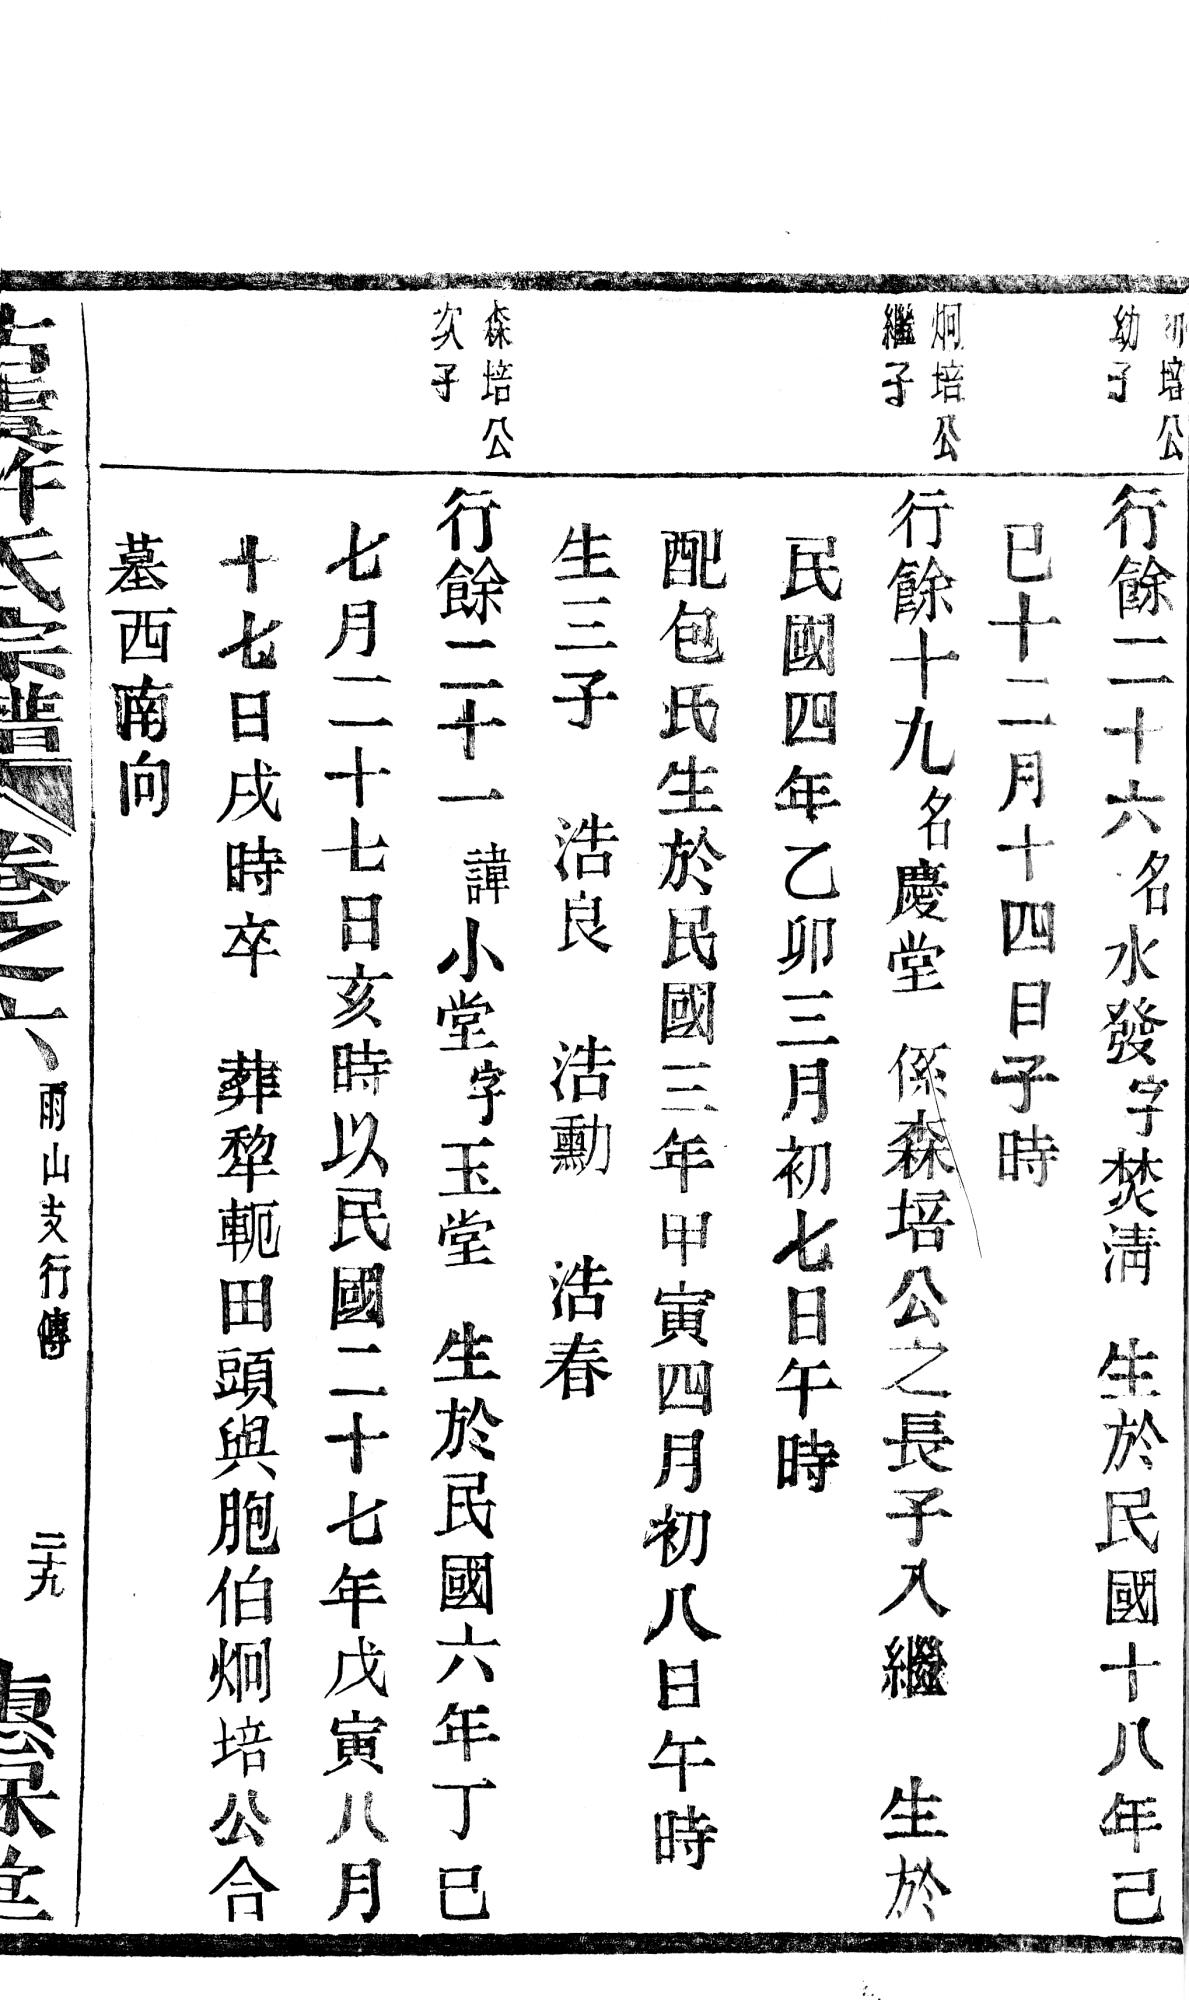 培公
幼子
行餘二十六名水發字焚淸　生於民國十八年己
巳十二月十四日子時
炯培公
繼子
行餘十九名慶堂　係森培公之長子入繼　生於
民國四年乙卯三月初七日午時
配包氏生於民國三年甲寅四月初八日午時
生三子　浩良　浩勳　浩春
森培公
次子
行餘二十一　諱小堂字玉堂　生於民國六年丁巳
七月二十七日亥時以民國二十七年戊寅八月
十七日戌時卒　葬犂軛田頭與胞伯炯培公合
墓西南向
古虞許氏宗譜　卷之六　雨山支行傳　二十九